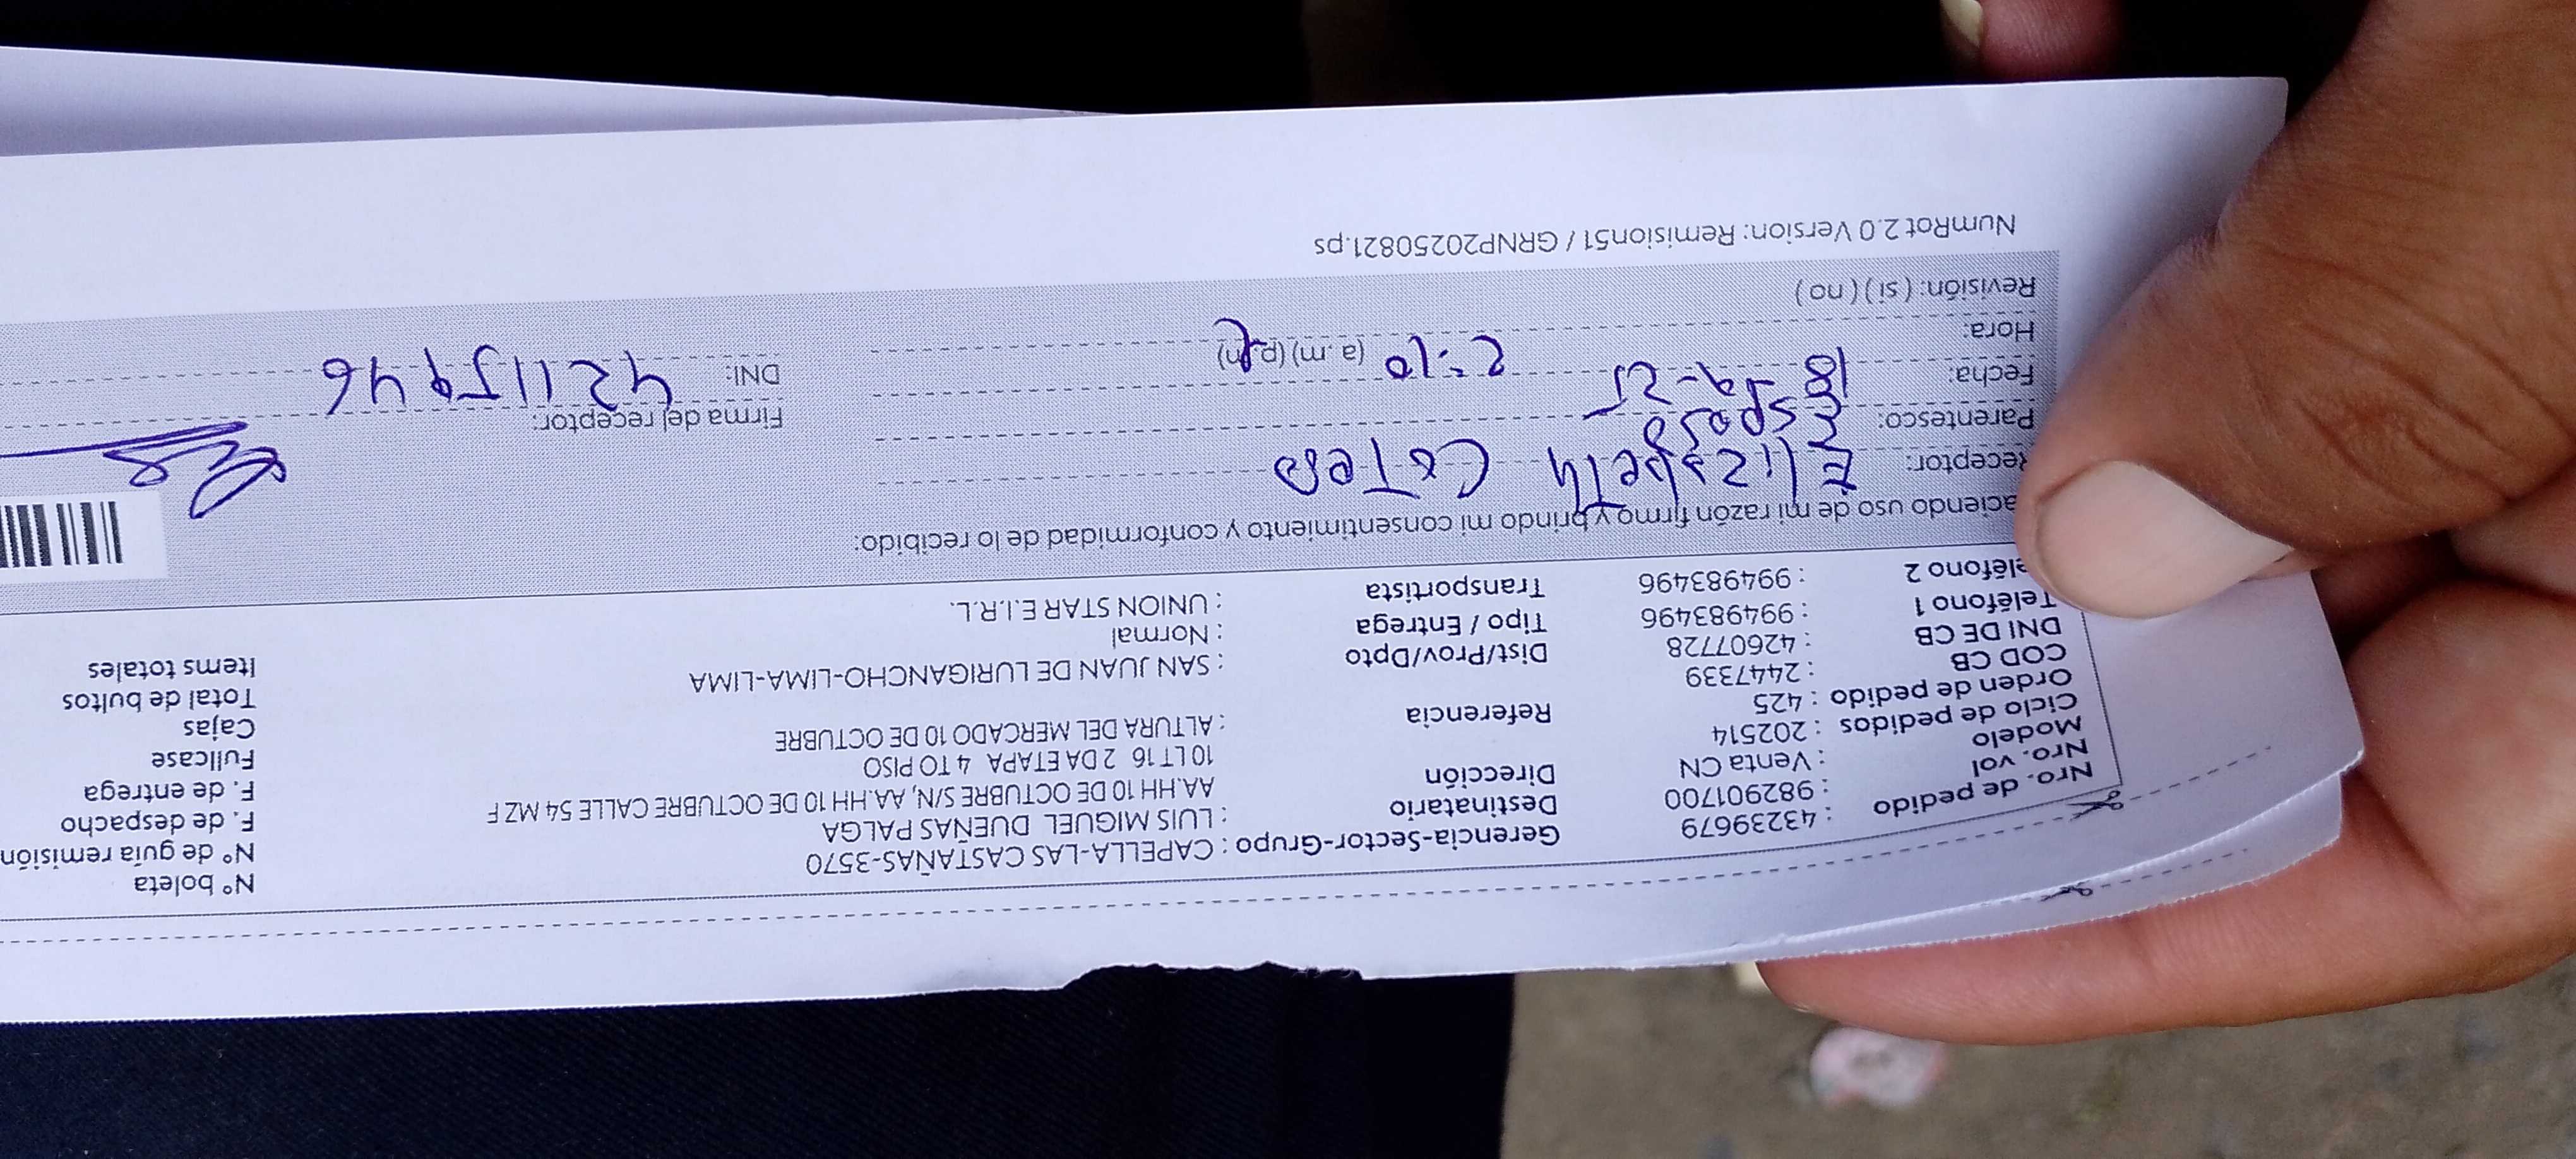 Nro. de pedido : 43239679 Gerencia-Sector-Grupo : CAPELLA-LAS CASTAÑAS-3570 N° boleta
Nro. vol : 982901700 Destinatario : LUIS MIGUEL DUEÑAS PALGA N° de guía remisión
Modelo : Venta CN Dirección AA.HH 10 DE OCTUBRE S/N, AA.HH 10 DE OCTUBRE CALLE 54 MZ F F. de despacho
Ciclo de pedidos : 202514 10 LT 16 2 DA ETAPA 4 TO PISO F. de entrega
Orden de pedido : 425 Referencia : ALTURA DEL MERCADO 10 DE OCTUBRE Fullcase
COD CB : 2447339 Cajas
DNI DE CB : 42607728 Dist/Prov/Dpto : SAN JUAN DE LURIGANCHO-LIMA-LIMA Total de bultos
Teléfono 1 : 994983496 Tipo / Entrega : Normal Items totales
eléfono 2 : 994983496 Transportista : UNION STAR E.I.R.L.
aciendo uso de mi razón firmo y brindo mi consentimiento y conformidad de lo recibido:
Receptor: Elizabeth
Parentesco: Esposa Firma del receptor:
Fecha: 18 DNI: 42115946
Hora: 2:10 (a.m) (p.m)
Revisión: (si) (no)
NumRot 2.0 Version: Remision51 / GRNP20250821.ps